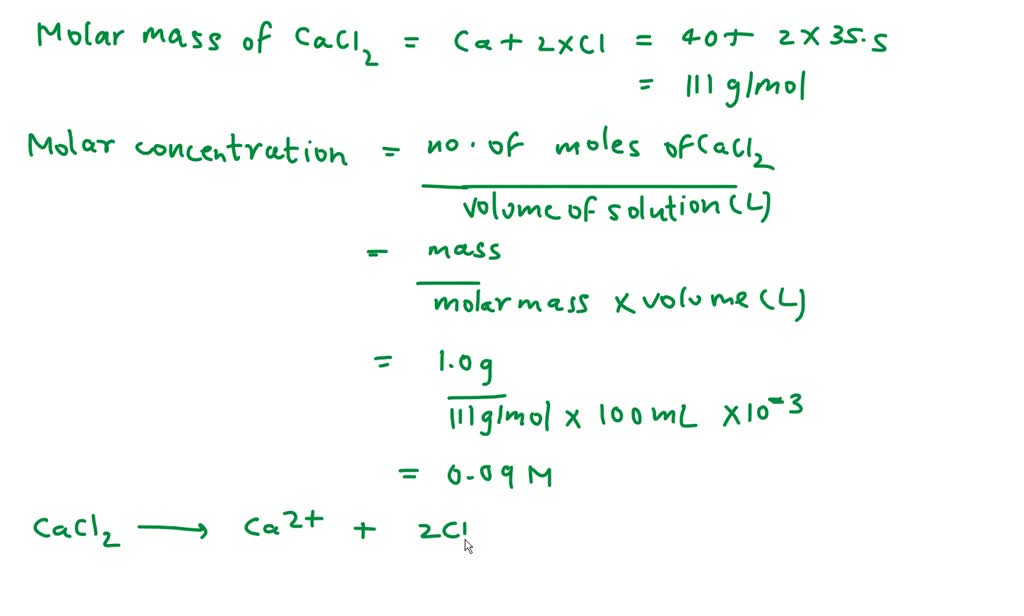 Molar mass of CaCl2 = Ca + 2 x Cl = 40 + 2 x 35.5
= 111 g/mol
Molar concentration = no. of moles of CaCl2
volume of solution (L)
= mass
molar mass x volume (L)
= 1.0 g
111 g/mol x 100 mL x 10^-3
= 0.09 M
CaCl2 → Ca^2+ + 2Cl